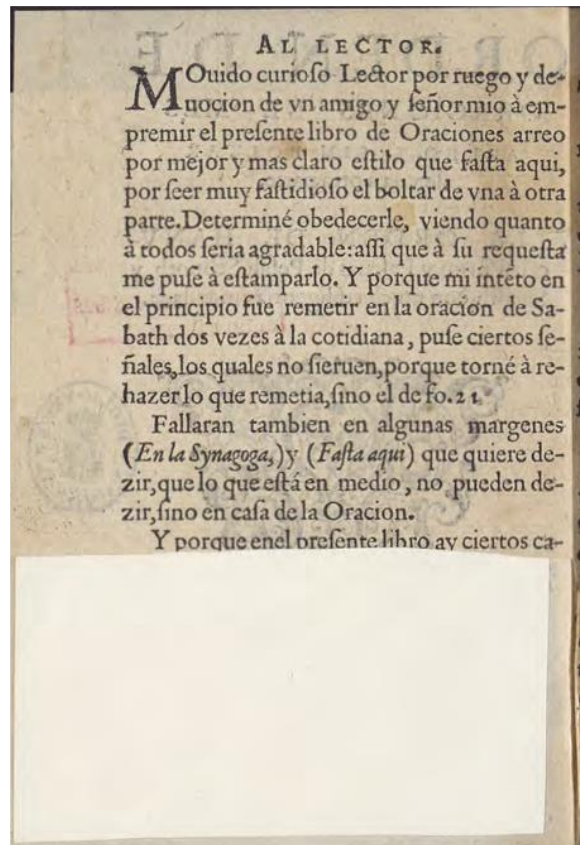 AL LECTOR.
MOuido curioſo Lector por ruego y de-
uocion de vn amigo y ſeñor mio à em-
premir el preſente libro de Oraciones arreo
por mejor y mas claro eſtilo que faſta aqui,
por ſeer muy faſtidioſo el boltar de vna à otra
parte. Determiné obedecerle, viendo quanto
à todos ſeria agradable: aſſi que à ſu requeſta
me puſe à eſtamparlo. Y porque mi intẽto en
el principio fue remetir en la oracion de Sa-
bath dos vezes à la cotidiana, puſe ciertos ſe-
ñales, los quales no ſieruen, porque torné à re-
hazer lo que remetia, ſino el de fo. 21.
Fallaran tambien en algunas margenes
(En la Synagoga,) y (Faſta aqui) que quiere de-
zir, que lo que eſtá en medio, no pueden de-
zir, ſino en caſa de la Oracion.
Y porque enel preſente libro ay ciertos ca-